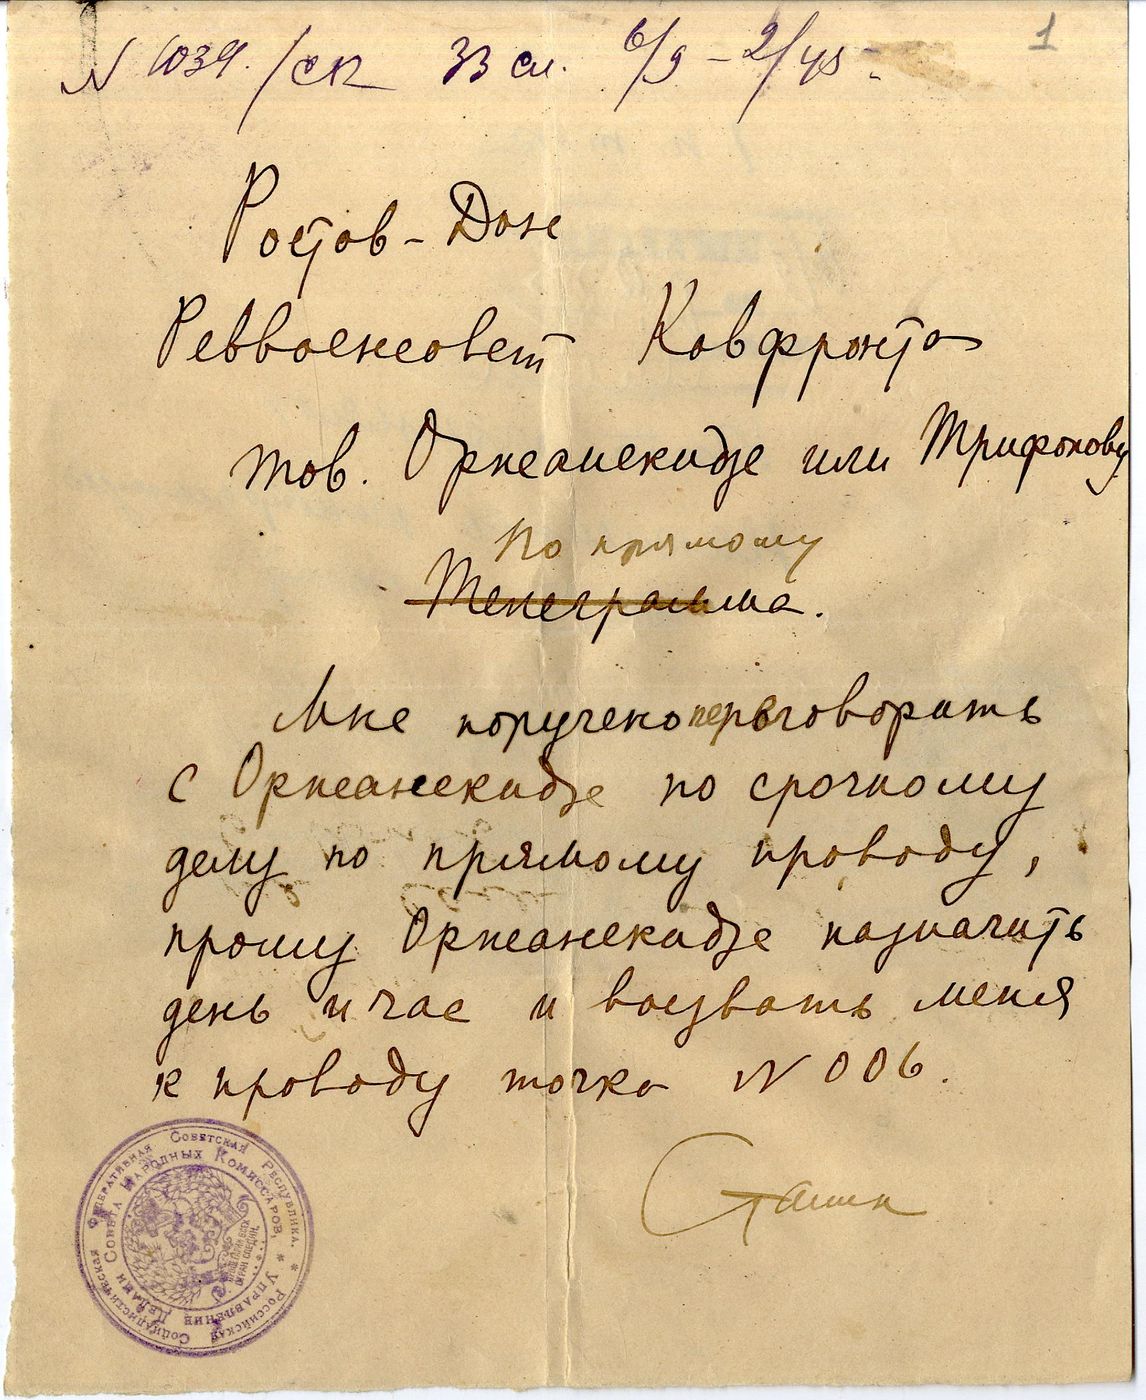 N 1039./ск 33 сл. 6/9 - 2/45
1
Ростов-Дон
Реввоенсовет Кавфронта
тов. Оржанекидзе или Трифонову
По прямому
Телеграмма.
Мне поручено переговорить
с Орженекидзе по срочному
делу по прямому проводу,
прошу Орженекидзе назначить
день и час и вызвать меня
к проводу точка N 006.
Сталин
Российская Социалистическая Федеративная Советская Республика.
Управление Делами Совета Народных Комиссаров